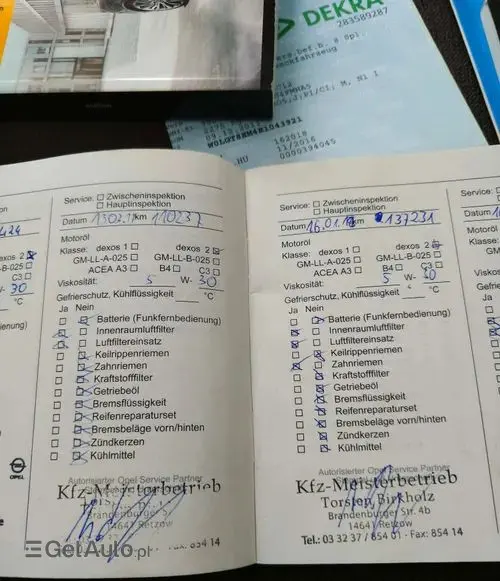 DEKRA
283589287
162018
11/2016
HU
0000194045
Service: Zwischeninspektion
Hauptinspektion
Datum 13.02.17 km 110237
Motoröl
Klasse: dexos 1 dexos 2
GM-LL-A-025 GM-LL-B-025
ACEA A3 B4 C3
Viskosität: 5 W- 30
Gefrierschutz, Kühlflüssigkeit °C
Ja Nein
Batterie (Funkfernbedienung)
Innenraumluftfilter
Luftfiltereinsatz
Keilrippenriemen
Zahnriemen
Kraftstofffilter
Getriebeöl
Bremsflüssigkeit
Reifenreparaturset
Bremsbeläge vorn/hinten
Zündkerzen
Kühlmittel
Autorisierter Opel Service Partner
Kfz-Meisterbetrieb
Brandenburger Str. 4b
14641 Retzow
Fax: 854 14
OPEL
Service: Zwischeninspektion
Hauptinspektion
Datum 16.01.18 km 137231
Motoröl
Klasse: dexos 1 dexos 2
GM-LL-A-025 GM-LL-B-025
ACEA A3 B4 C3
Viskosität: 5 W- 30
Gefrierschutz, Kühlflüssigkeit °C
Ja Nein
Batterie (Funkfernbedienung)
Innenraumluftfilter
Luftfiltereinsatz
Keilrippenriemen
Zahnriemen
Kraftstofffilter
Getriebeöl
Bremsflüssigkeit
Reifenreparaturset
Bremsbeläge vorn/hinten
Zündkerzen
Kühlmittel
Autorisierter Opel Service Partner
Kfz-Meisterbetrieb
Torsten Birkholz
Brandenburger Str. 4b
14641 Retzow
Tel.: 03 32 37 / 854 01 - Fax: 854 14
GetAuto.pl